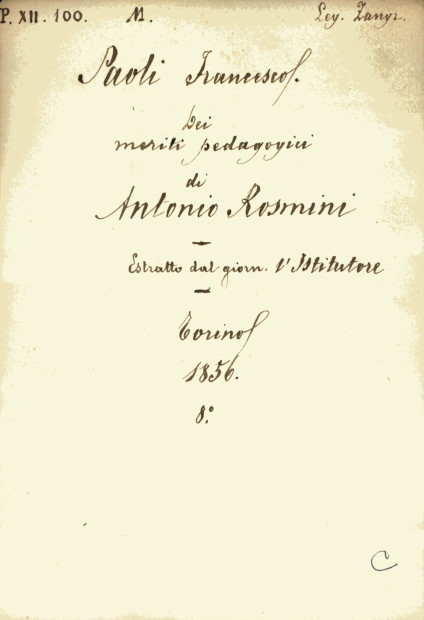 P. XII. 100. M. Leg. Zangr.
Paoli Francesco.
Dei
meriti pedagogici
di
Antonio Rosmini
Estratto dal giorn. l'Istitutore
Torino
1856.
8.°
C